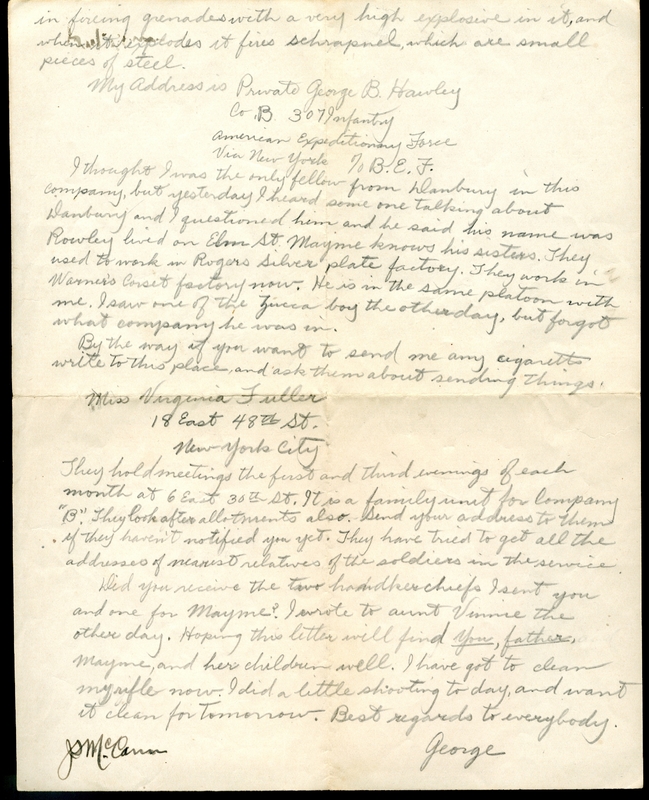 in firing grenades with a very high explosive in it, and
when it explodes it fires schrapnel, which are small
pieces of steel.
My Address is Private George B. Hawley
Co. B 307 Infantry
American Expeditionary Force
Via New York % B.E.F.
I thought I was the only fellow from Danbury in this
company, but yesterday I heard some one talking about
Danbury and I questioned him and he said his name was
Rowley lived on Elm St. Mayme knows his sisters. They
used to work in Rogers Silver plate factory. They work in
Warner's Corset factory now. He is in the same platoon with
me. I saw one of the Zucca boy the other day, but forgot
what company he was in.
By the way if you want to send me any cigaretts
write to this place, and ask them about sending things.
Miss Virginia Fuller
18 East 48th St.
New York City
They hold meetings the first and third evenings of each
month at 6 East 30th St. It is a family unit for Company
"B". They look after allotments also. Send your address to them
if they haven't notified you yet. They have tried to get all the
addresses of nearest relatives of the soldiers in the service.
Did you receive the two handkerchiefs I sent you
and one for Mayme? I wrote to aunt Vinnie the
other day. Hoping this letter will find you, father,
Mayme, and her children well. I have got to clean
my rifle now. I did a little shooting to day, and want
it clean for tomorrow. Best regards to everybody.
George